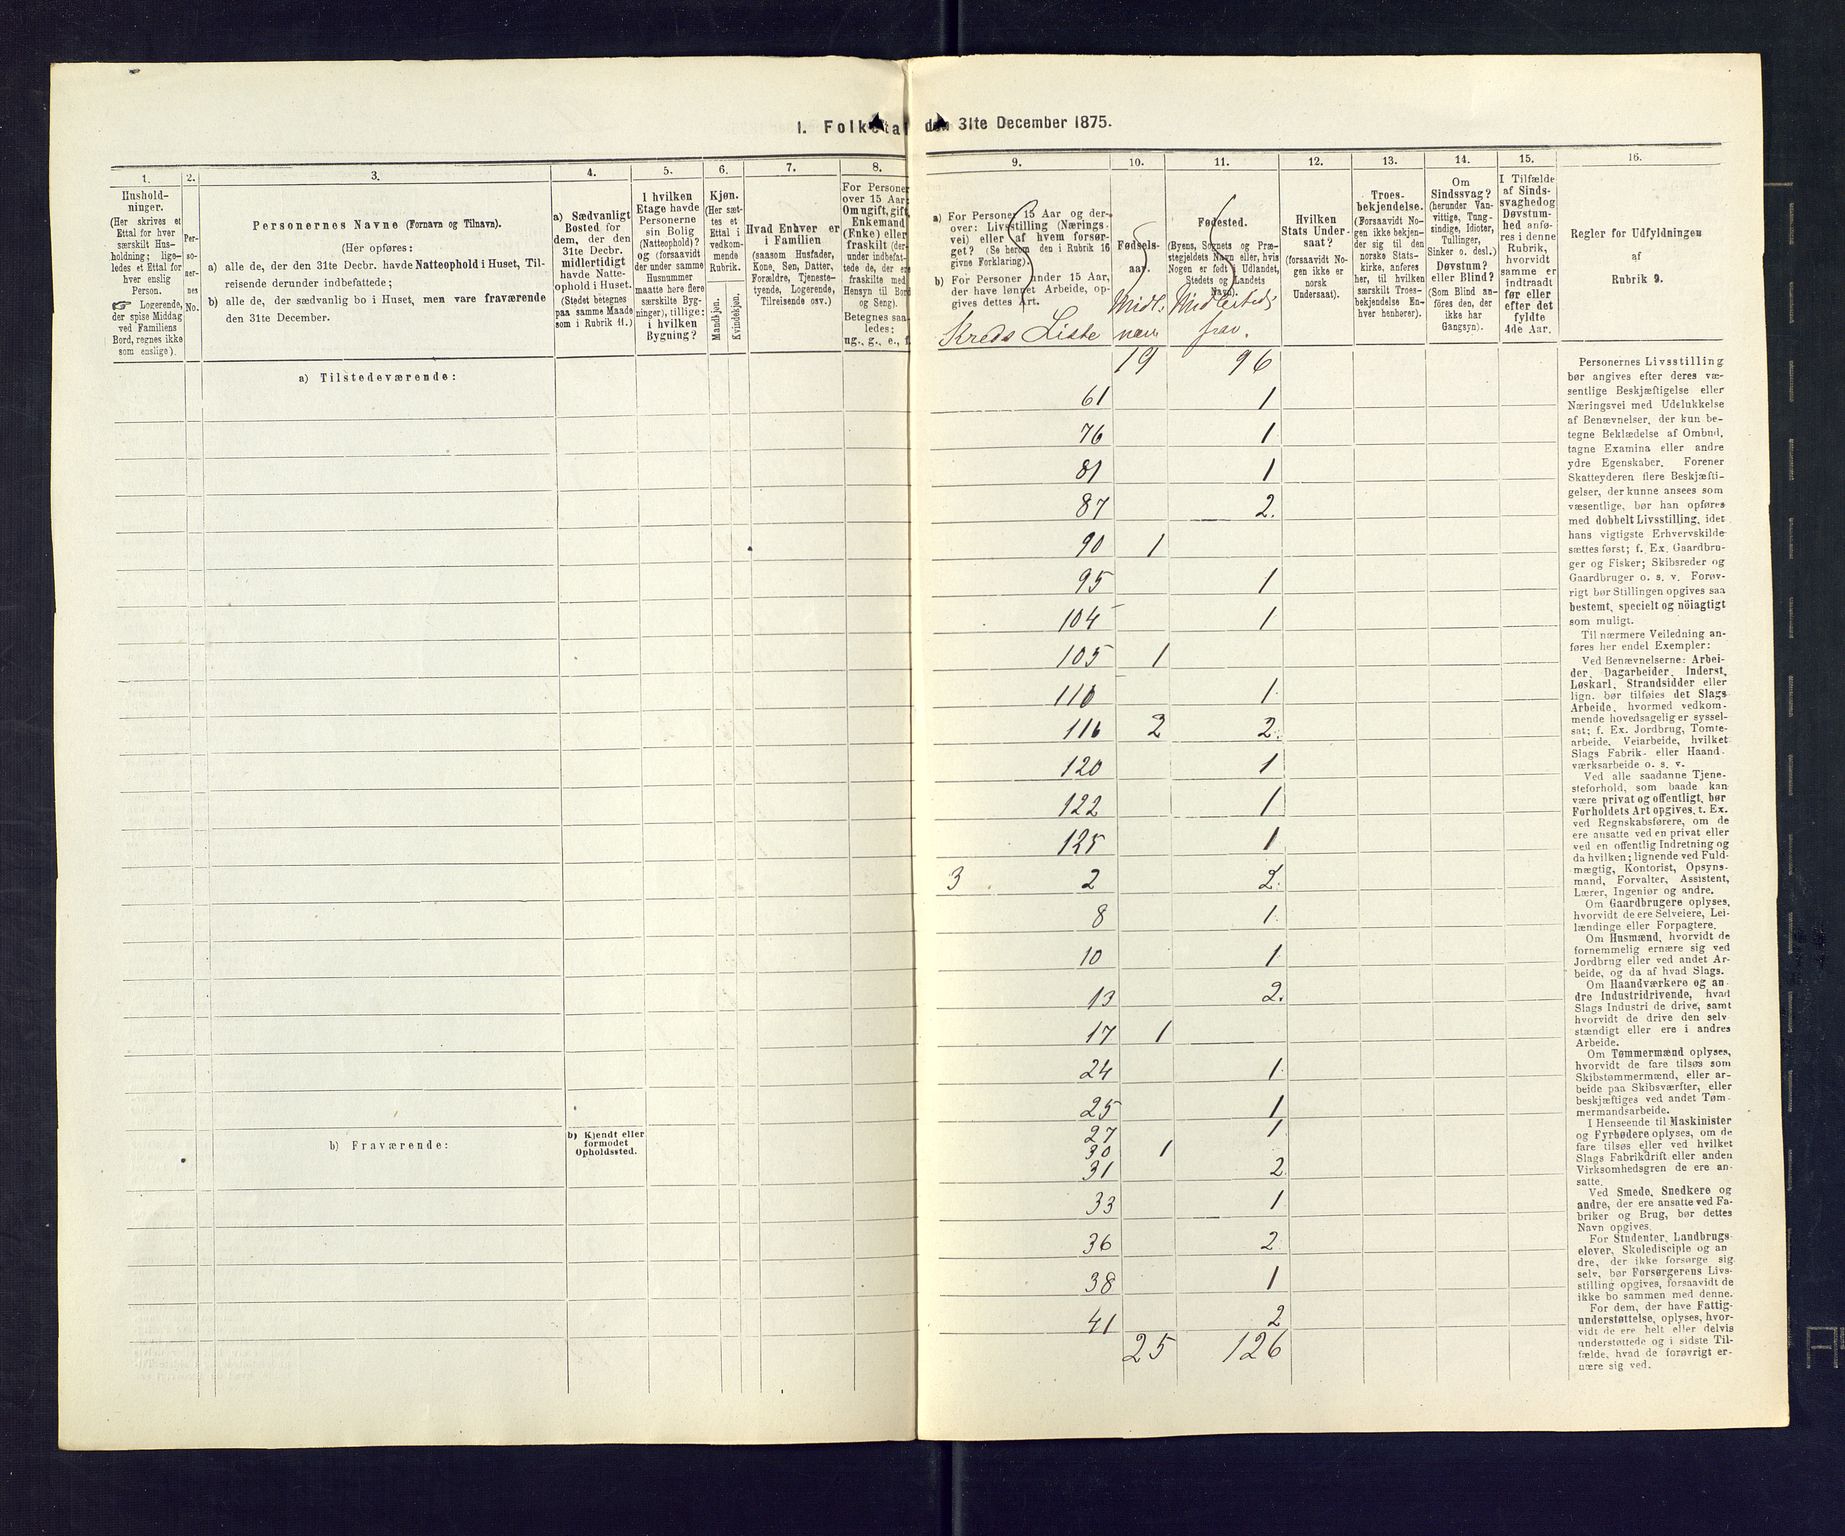 1. Folketal den 31te December 1875.
1.
Hushold-
ninger.
(Her skrives et
Ettal for hver
særskilt Hus-
holdning; lige-
ledes et Ettal for
hver enslig
Person.
☞ Logerende,
der spise Middag
ved Familiens
Bord, regnes ikke
som enslige).
2.
Per-
so-
ner-
nes
No.
3.
Personernes Navne (Fornavn og Tilnavn).
(Her opføres:
a) alle de, der den 31te Decbr. havde Natteophold i Huset, Til-
reisende derunder indbefattede;
b) alle de, der sædvanlig bo i Huset, men vare fraværende
den 31te December.
4.
a) Sædvanligt
Bosted for
dem, der den
31te Decbr.
midlertidigt
havde Natte-
ophold i Huset.
(Stedet betegnes
paa samme Maade
som i Rubrik 11.)
5.
I hvilken
Etage havde
Personerne
sin Bolig
(Natteophold)?
og (forsaavidt
der under samme
Husnummer
maatte høre flere
særskilte Byg-
ninger), tillige:
i hvilken
Bygning?
6.
Kjøn.
(Her sæt-
tes et
Ettal i
vedkom-
mende
Rubrik.
Mandkjøn.
Kvindekjøn.
7.
Hvad Enhver er
i Familien
(saasom Husfader,
Kone, Søn, Datter,
Forældre, Tjeneste-
tyende, Logerende,
Tilreisende osv.)
8.
For Personer
over 15 Aar:
Om ugift, gift,
Enkemand
(Enke) eller
fraskilt (der-
under indbefat-
tede de, der ere
fraskilte med
Hensyn til Bord
og Seng).
Betegnes saa-
ledes:
ug., g., e., f.
a) Tilstedeværende:
b) Fraværende:
b) Kjendt eller
formodet
Opholdssted.
9.
a) For Personer 15 Aar og der-
over: Livsstilling (Nærings-
vei) eller af hvem forsør-
get? (Se herom den i Rubrik 16
givne Forklaring).
b) For Personer under 15 Aar,
der have lønnet Arbeide, op-
gives dettes Art.
10.
Fødsels-
aar.
11.
Fødested.
(Byens, Sognets og Præ-
stegjeldets Navn eller, hvis
Nogen er født i Udlandet,
Stedets og Landets
Navn).
12.
Hvilken
Stats Under-
saat?
(forsaavidt No-
gen ikke er
norsk
Undersaat).
13.
Troes-
bekjendelse.
(Forsaavidt No-
gen ikke bekjen-
der sig til den
norske Stats-
kirke, anføres
her, til hvilken
særskilt Troes-
bekjendelse En-
hver henhører).
14.
Om
Sindssvag?
(herunder Van-
vittige, Tung-
sindige, Idioter,
Tullinger,
Sinker o. desl.)
Døvstum?
eller Blind?
(Som Blind an-
føres den, der
ikke har
Gangsyn).
15.
I Tilfælde
af Sinds-
svaghedog
Døvstum-
hed anfø-
res i denne
Rubrik,
hvorvidt
samme er
indtraadt
før eller
efter det
fyldte
4de Aar.
16.
Regler for Udfyldningen
af
Rubrik 9.
Kreds Liste Midl. nær. Midlertids frav.
19 96
61 1
76 1
81 1
87 2.
90 1
95 1
104 1
105 1
110 1
116 2 2.
120 1
122 1
125 1
3 2 2.
8 1.
10 1
13 2.
17 1
24 1.
25 1
27 1
30 1
31 2
33 1
36 2
38 1
41 2
25 126
Personernes Livsstilling
bør angives efter deres væ-
sentlige Beskjæftigelse eller
Næringsvei med Udelukkelse
af Benævnelser, der kun be-
tegne Beklædelse af Ombud,
tagne Examina eller andre
ydre Egenskaber. Forener
Skatteyderen flere Beskjæfti-
gelser, der kunne ansees som
væsentlige, bør han opføres
med dobbelt Livsstilling, idet
hans vigtigste Erhvervskilde
sættes først; f. Ex. Gaardbru-
ger og Fisker; Skibsreder og
Gaardbruger o. s. v. Forøv-
rigt bør Stillingen opgives saa
bestemt, specielt og nöiagtigt
som muligt.
Til nærmere Veiledning an-
føres her endel Exempler:
Ved Benævnelserne: Arbei-
der, Dagarbeider, Inderst,
Løskarl, Strandsidder eller
lign. bør tilføies det Slags
Arbeide, hvormed vedkom-
mende hovedsagelig er syssel-
sat; f. Ex. Jordbrug, Tomte-
arbeide, Veiarbeide, hvilket
Slags Fabrik- eller Haand-
værksarbeide o. s. v.
Ved alle saadanne Tjene-
steforhold, som baade kan
være privat og offentligt, bør
Forholdets Art opgives, t. Ex.
ved Regnskabsførere, om de
ere ansatte ved en privat eller
ved en offentlig Indretning og
da hvilken; lignende ved Fuld-
mægtig, Kontorist, Opsyns-
mand, Forvalter, Assistent,
Lærer, Ingeniør og andre.
Om Gaardbrugere oplyses,
hvorvidt de ere Selveiere, Lei-
lændinge eller Forpagtere.
Om Husmænd, hvorvidt de
fornemmelig ernære sig ved
Jordbrug eller ved andet Ar-
beide, og da af hvad Slags.
Om Haandværkere og an-
dre Industridrivende, hvad
Slags Industri de drive, samt
hvorvidt de drive den selv
stændigt eller ere i andres
Arbeide.
Om Tømmermænd oplyses,
hvorvidt de fare tilsøs som
Skibstømmermænd, eller ar-
beide paa Skibsværfter, eller
beskjæftiges ved andet Tøm-
mermandsarbeide.
I Henseende til Maskinister
og Fyrbødere oplyses, om de
fare tilsøs eller ved hvilket
Slags Fabrikdrift eller anden
Virksomhedsgren de ere an-
satte.
Ved Smede, Snedkere og
andre, der ere ansatte ved Fa-
briker og Brug, bør dettes
Navn opgives.
For Studenter, Landbrugs-
elever, Skoledisciple og an
dre, der ikke forsørge sig
selv, bør Forsørgerens Livs-
stilling opgives, forsaavidt de
ikke bo sammen med denne.
For dem, der have Fattig-
understøttelse, oplyses, hvor-
vidt de ere helt eller delvis
understøttede og i sidste Til-
fælde, hvad de forøvrigt er-
nære sig ved.